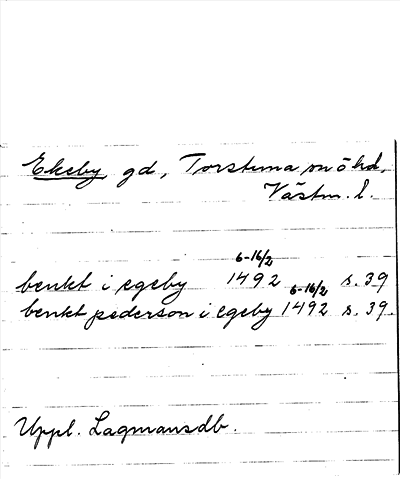 Ekeby gd, Torstuna sn ö hd,
Västm. l.
6-16/2
benkt i egeby 1492 s. 39
6-16/2
benkt pederson i egeby 1492 s. 39.
Uppl. Lagmansdb.